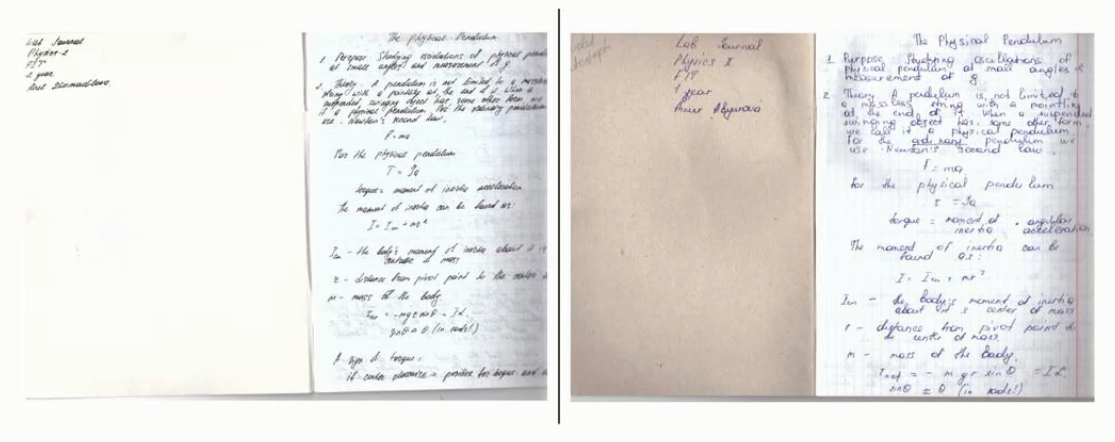 Lab Journal
Physics-2
FIT
2 year
The physical Pendulum
1. Purpose: Studying oscillations of physical
at small angles and measurement of g
2. Theory: A pendulum is not limited to a
string with a at the end of it when a
suspended, swinging object has some other form we
it a physical pendulum. For the ordinary pendulum
use Newton's second law.
F = ma
For the physical pendulum
T = Ja
torque = moment of inertia acceleration
The moment of inertia can be found as:
I = Icm + mr²
Icm - the body's moment of inertia about
of mass
r - distance from pivot point to the center
m - mass of the body
= -mgr sinθ = Iα
sinθ ≈ θ (in rads!)
A sign of torque =
if = positive for torque and
Lab Journal
Physics II
FIT
1 year
The Physical Pendulum
1 Purpose: Studying oscillations of
physical pendulum at small angles &
measurement of g
2. Theory: A pendulum is not limited to
a massless string with a
at the end of it. When a suspended
swinging object has some other form
we call it a physical pendulum
For the pendulum we
use Newton's Second Law
F = ma
for the physical pendulum
τ = Ja
torque = moment of • angular
inertia acceleration
The moment of inertia can be
found as:
I = Icm + mr²
Icm - the body's moment of inertia
about it's center of mass
r - distance from pivot point to
center of mass.
m - mass of the body.
Inet = - m gr sinθ = Iα
sinθ ≅ θ (in rads!)